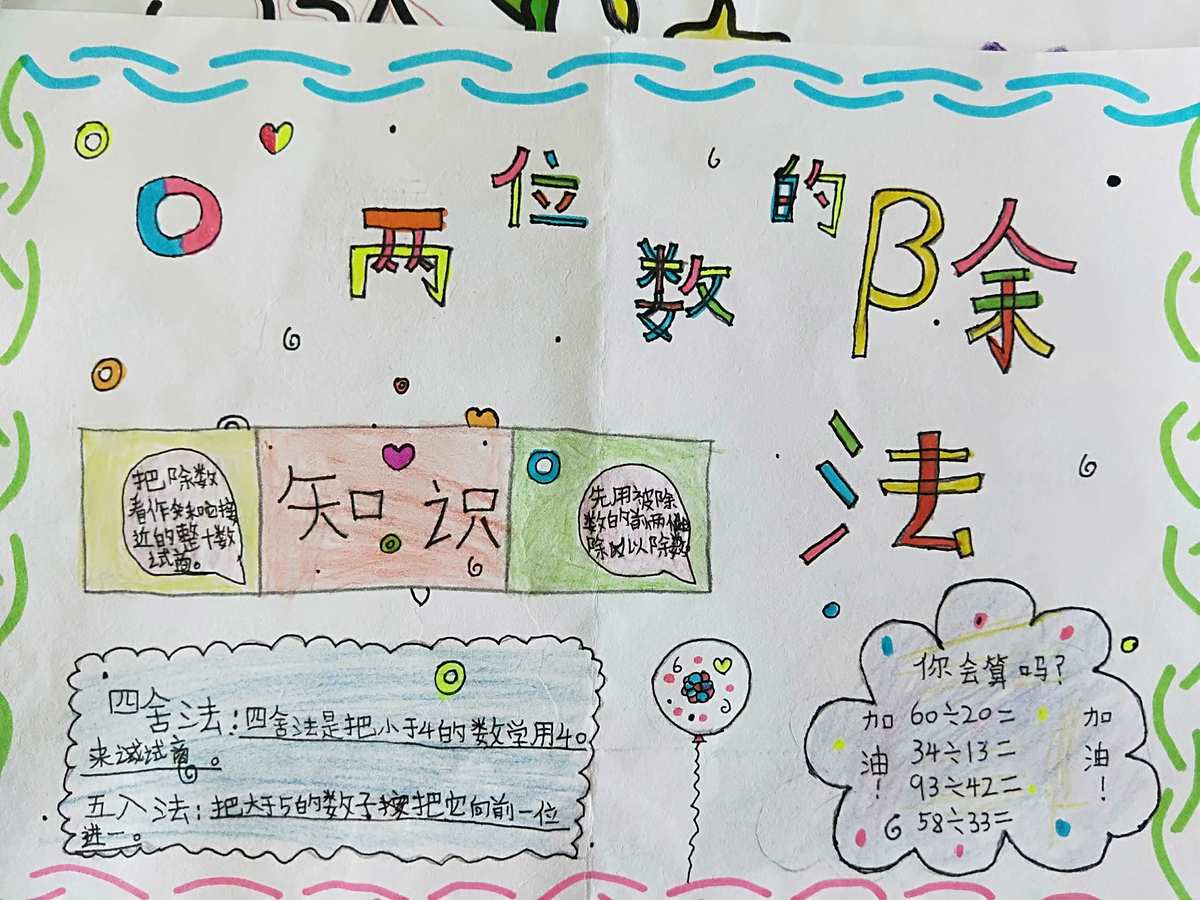 两位数的除法
知识
把除数
看作和它接
近的整十数
试商。
先用被除
数的前两位
除以除数
四舍法:四舍法是把小于4的数学用40
来试商。
五入法:把大于5的数子按把它向前一位
进一。
你会算吗?
加油!
60÷20=
34÷13=
93÷42=
58÷33=
加油!